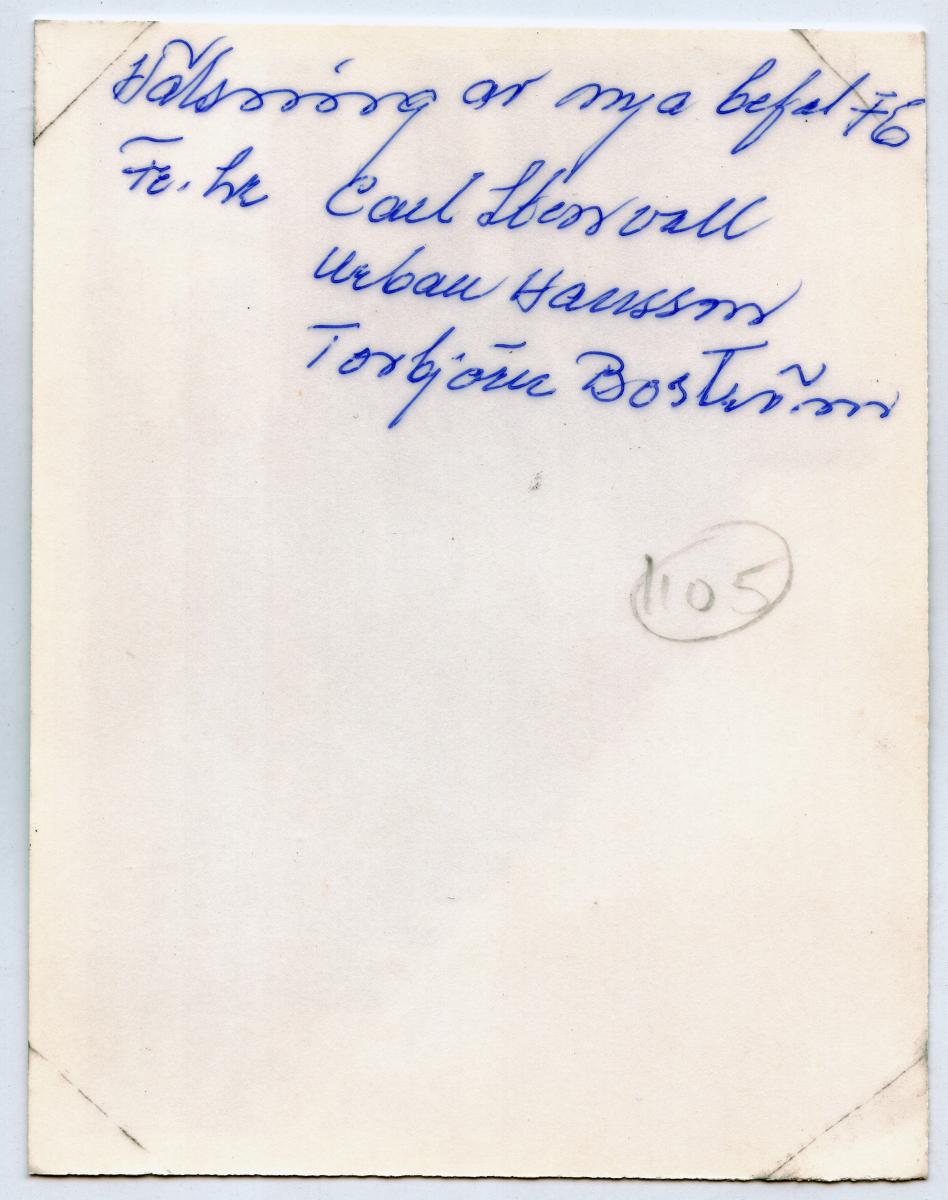 Hälsning av nya befal F6
Fr. hr Carl Stenvall
Urban Hansson
Torbjörn Boström
1105